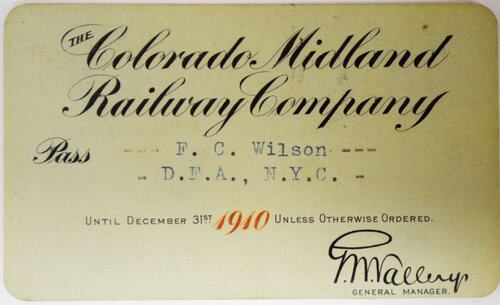 THE Colorado Midland
Railway Company
Pass --- F. C. Wilson ---
- D.F.A., N.Y.C. -
UNTIL DECEMBER 31ST 1910 UNLESS OTHERWISE ORDERED.
GENERAL MANAGER.